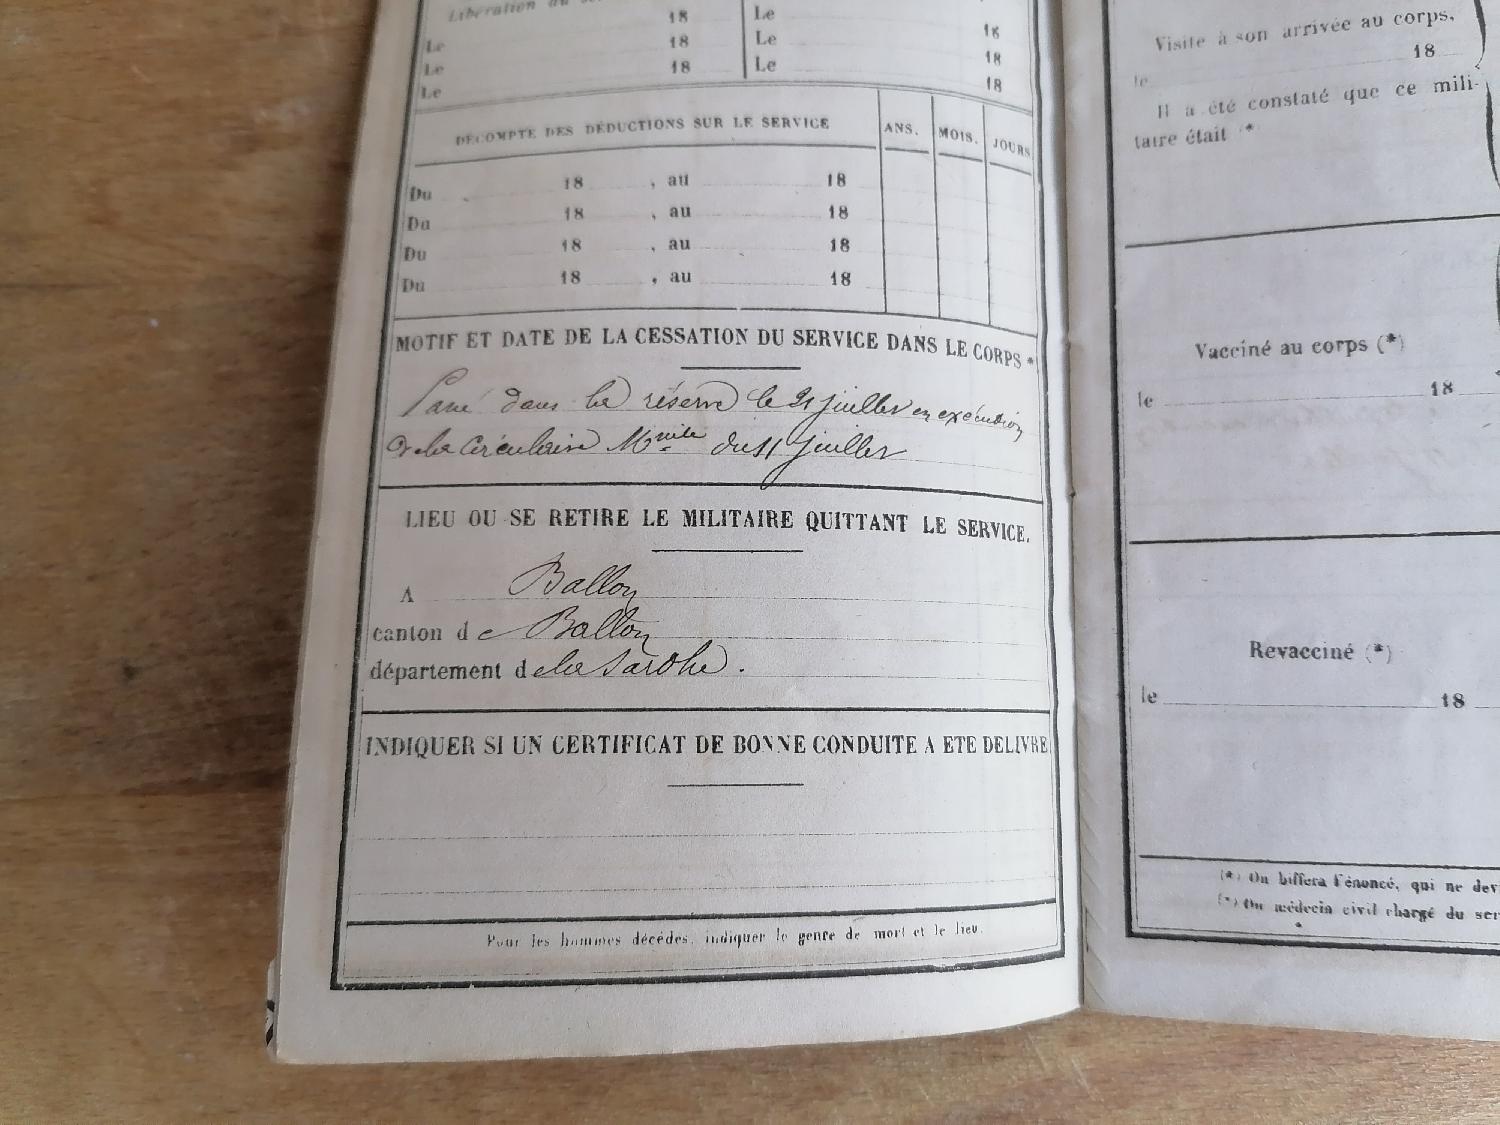 Libération du
18 Le
Le 18 Le 18
Le 18 Le 18
Le 18
DÉCOMPTE DES DÉDUCTIONS SUR LE SERVICE ANS. MOIS. JOURS
Du 18 , au 18
Du 18 , au 18
Du 18 , au 18
Du 18 , au 18
MOTIF ET DATE DE LA CESSATION DU SERVICE DANS LE CORPS *
Passé dans la réserve le 21 juillet en exécution
de la Circulaire Mnile du 11 juillet
LIEU OU SE RETIRE LE MILITAIRE QUITTANT LE SERVICE.
A Ballon
canton de Ballon
département de la Sarthe.
INDIQUER SI UN CERTIFICAT DE BONNE CONDUITE A ETE DELIVRE
Pour les hommes décédés, indiquer le genre de mort et le lieu.
Visite à son arrivée au corps,
le 18
Il a été constaté que ce mili-
taire était *
Vacciné au corps (*)
le 18
Revacciné (*)
le 18
(*) On biffera l'énoncé, qui ne
(*) Ou médecin civil chargé du